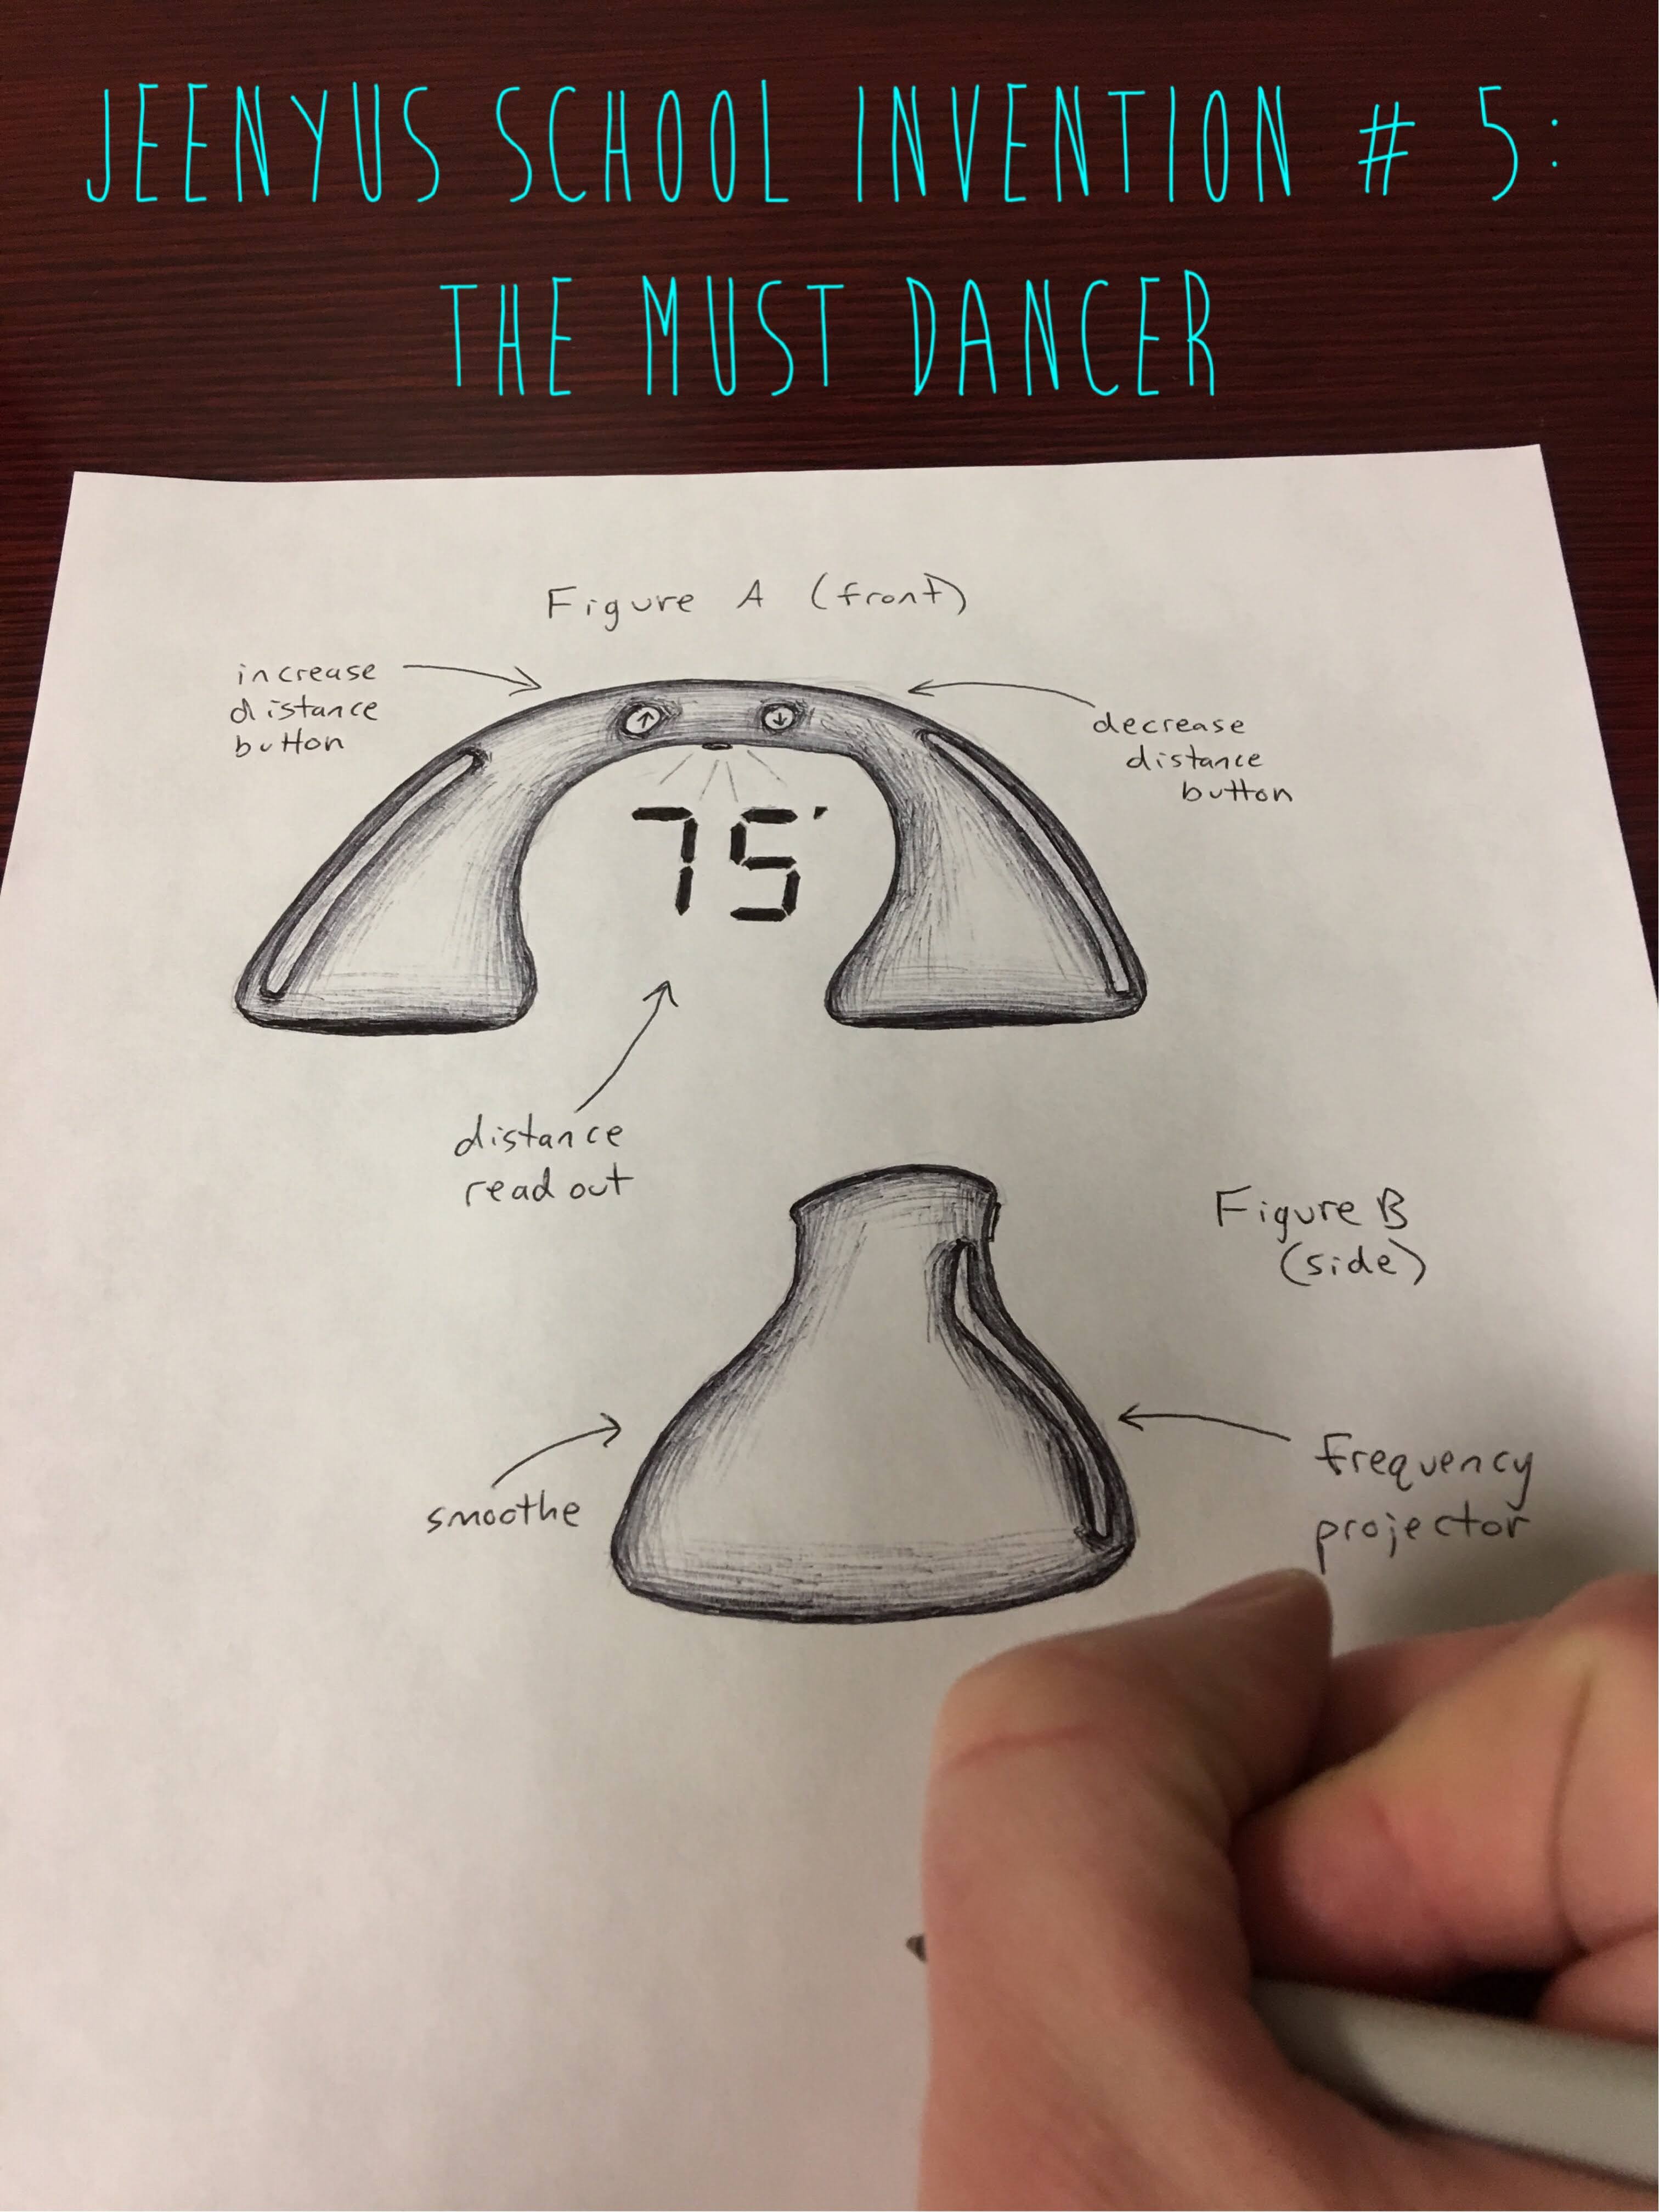 JEENYUS SCHOOL INVENTION # 5:
THE MUST DANCER
Figure A (front)
increase
distance
button
decrease
distance
button
↑
↓
75'
distance
readout
Figure B
(side)
smoothe
frequency
projector